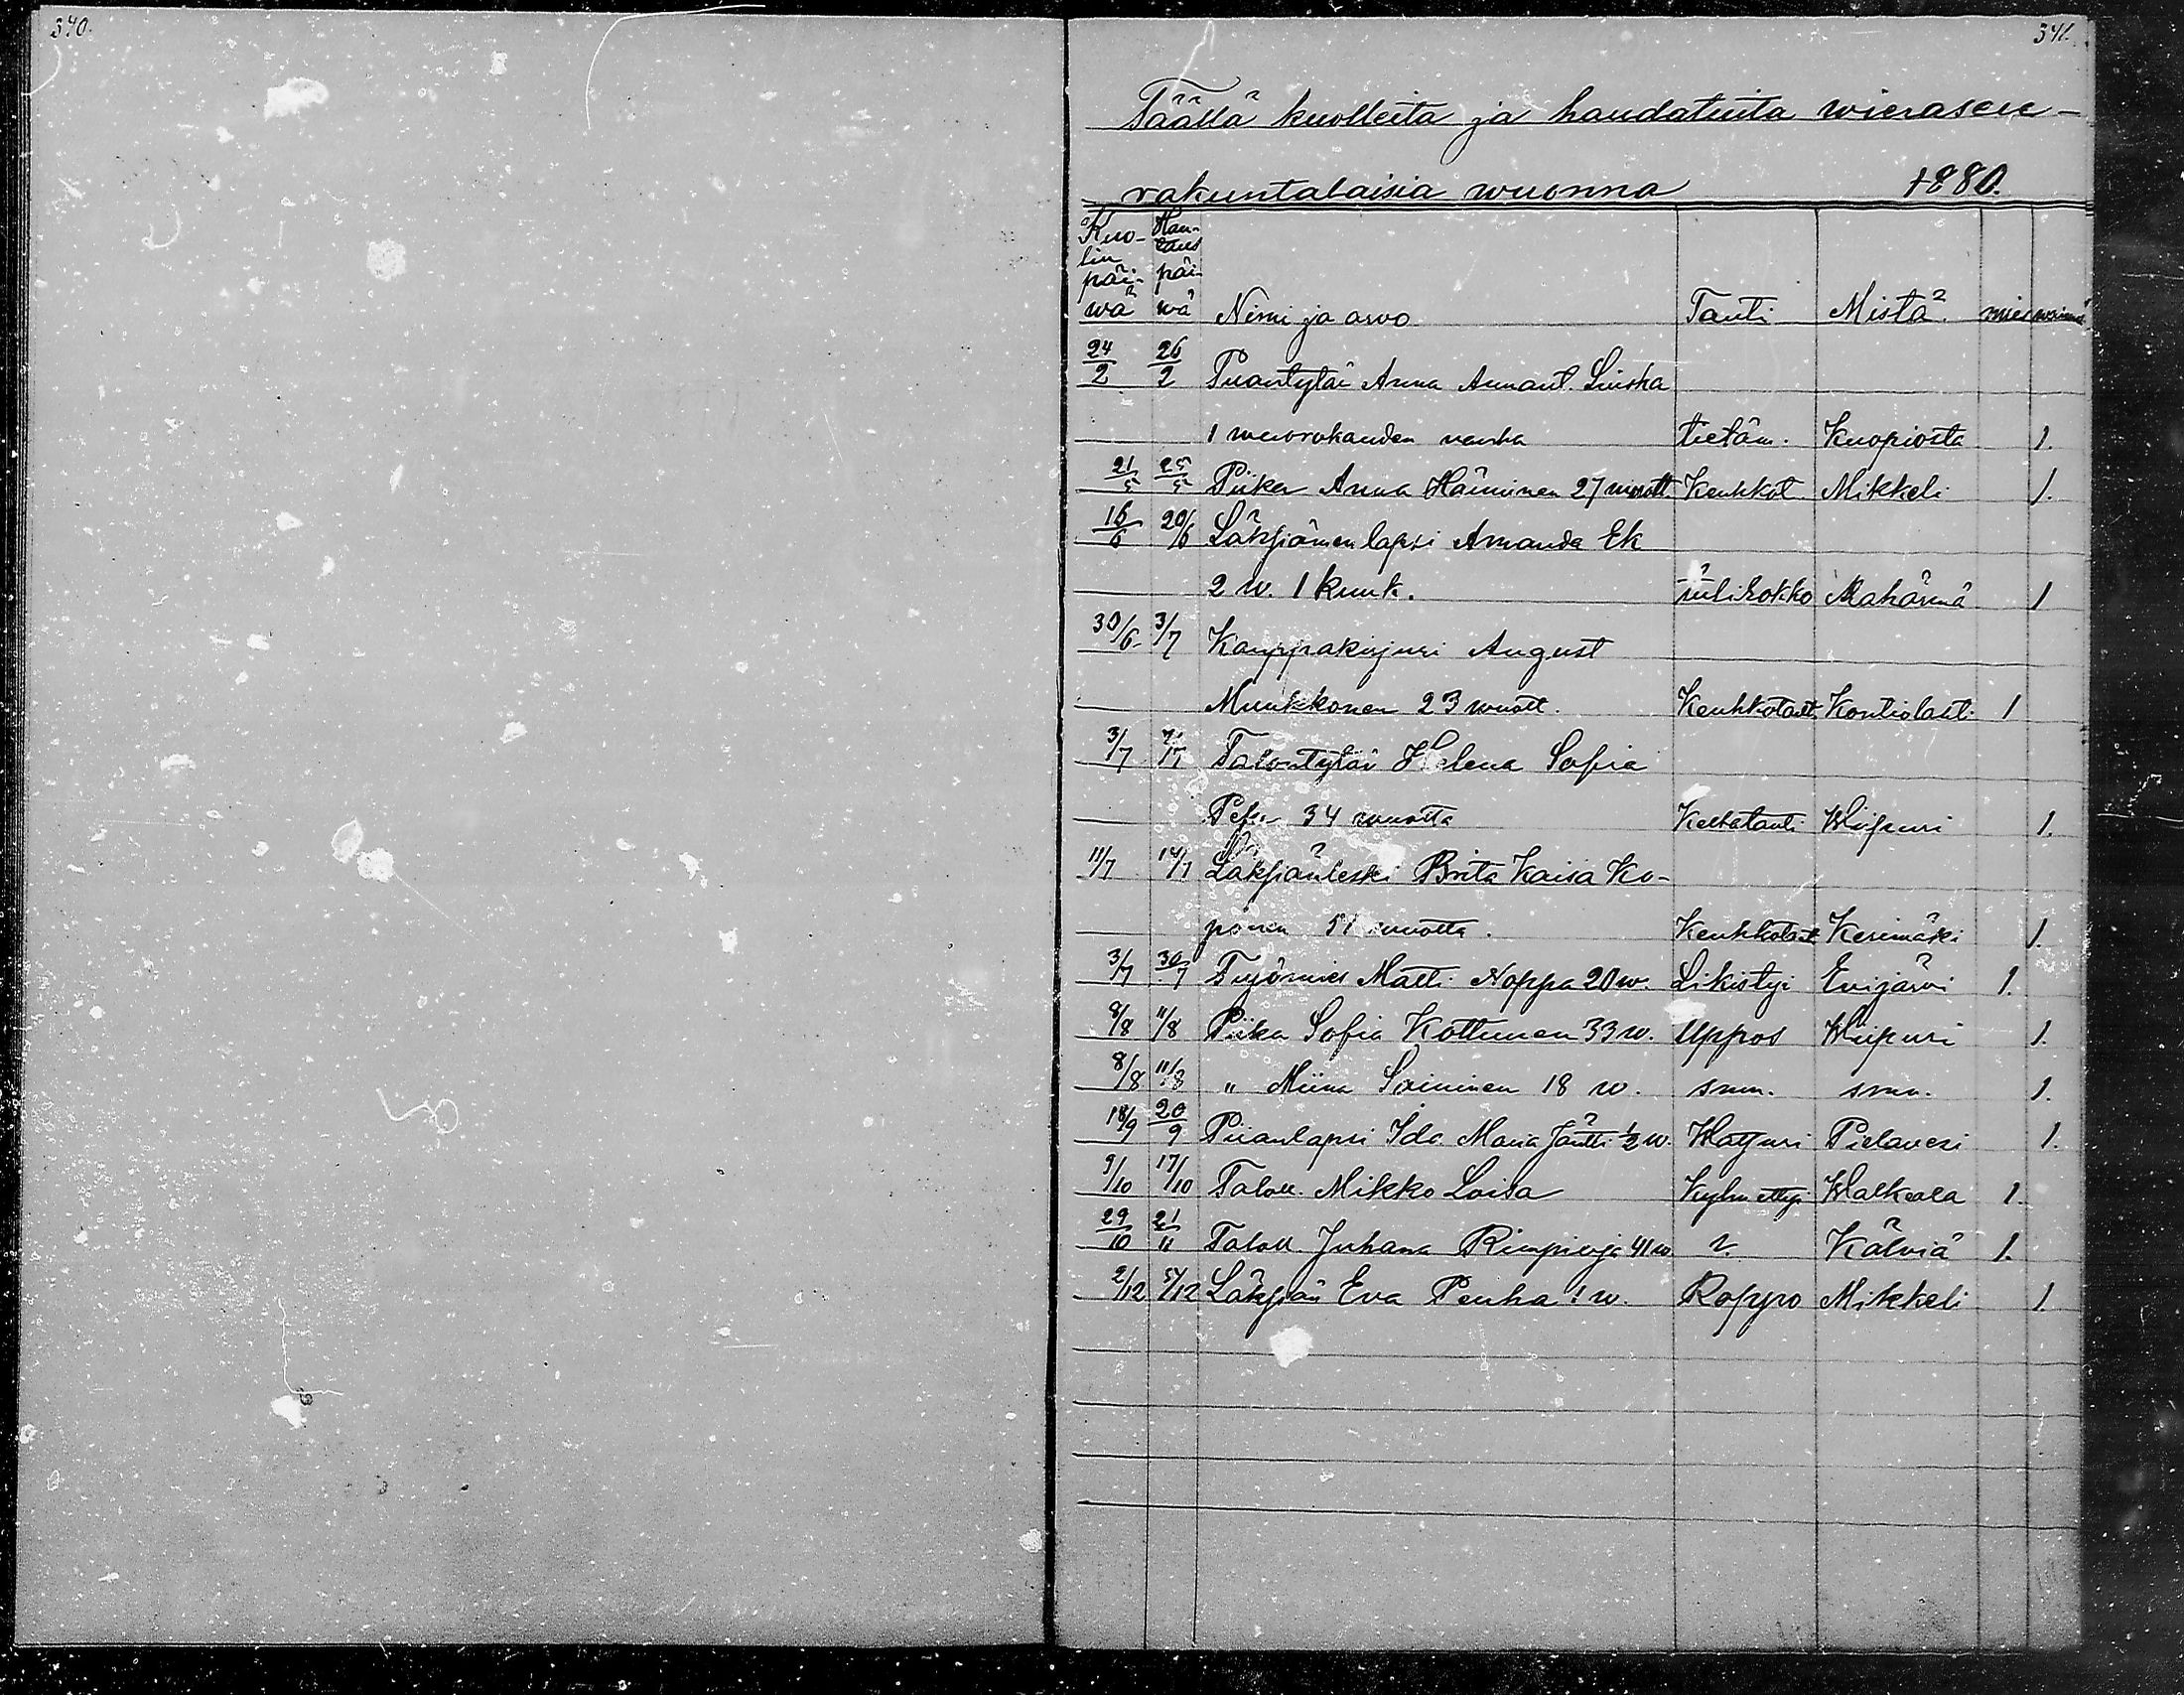 340.
341.
Täällä kuolleita ja haudatuita wierasseu-
rakuntalaisia wuonna 1880.
Kuo- Hau-
lin taus
päi- päi-
wä wä Nimi ja arwo Tauti Mistä mies
24/2 26/2 Piiantytär Anna Amant.
1 wuorokauden vanha tietäm. Kuopiosta 1.
21/5 25/5 Piika Anna Häminen 27 wuott Keuhkot Mikkeli 1.
16/6 20/6 lapsi Amanda Ek
2 w. 1 kuuk. Mahärmä 1
30/6 3/7 Kauppakirjuri August
Muukkonen 23 wuott. Keuhkotaut. Kontiolahti 1
3/7 7/7 Talontytär Helena Sofia
34 wuotta Keltatauti Wiipuri 1.
11/7 14/7 Brita Kaisa Ko-
ponen 51 wuotta. Keuhkotaut Kerimäki 1.
3/7 30/7 Työmies Matti Noppa 20 w. Likistyi Evijärvi 1.
8/8 11/8 Piika Sofia Kottunen 33 w. Uppos Wiipuri 1.
8/8 11/8 " Miina Soininen 18 w. sma. sma. 1.
18/9 20/9 Piianlapsi Ida Maria Jäntti 1/2 w. Pielavesi 1.
9/10 17/10 Taloll. Mikko Loisa Kylmettyi Walkeala 1.
29/10 21/11 Taloll. Juhana 41 w Kälviä 1.
2/12 5/12 Eva Penha 1 w. Mikkeli 1.